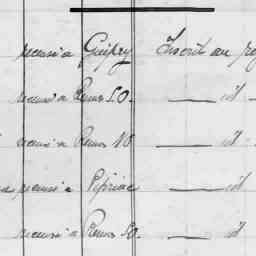 recensé a Guipry Inscrit au re
recensé a Rennes S.O. — id
recensé a Rennes NO — id
a recensé a Pipriac — id
recensé a Rennes S.O. — id